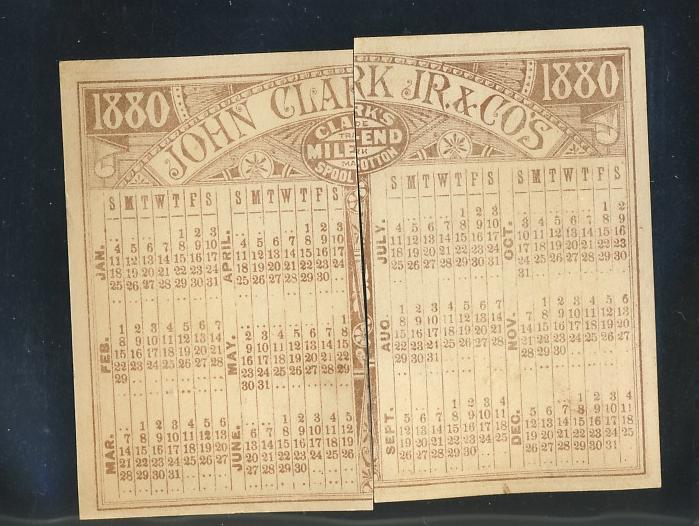 1880
JOHN CLARK JR. & CO'S
1880
CLARK'S
TRADE
MILE-END
MARK
SPOOL COTTON
S M T W T F S
JAN.
1 2 3
4 5 6 7 8 9 10
11 12 13 14 15 16 17
18 19 20 21 22 23 24
25 26 27 28 29 30 31
FEB.
1 2 3 4 5 6 7
8 9 10 11 12 13 14
15 16 17 18 19 20 21
22 23 24 25 26 27 28
29
MAR.
1 2 3 4 5 6
7 8 9 10 11 12 13
14 15 16 17 18 19 20
21 22 23 24 25 26 27
28 29 30 31
S M T W T F S
APRIL.
1 2 3
4 5 6 7 8 9 10
11 12 13 14 15 16 17
18 19 20 21 22 23 24
25 26 27 28 29 30
MAY.
1
2 3 4 5 6 7 8
9 10 11 12 13 14 15
16 17 18 19 20 21 22
23 24 25 26 27 28 29
30 31
JUNE.
1 2 3 4 5
6 7 8 9 10 11 12
13 14 15 16 17 18 19
20 21 22 23 24 25 26
27 28 29 30
S M T W T F S
JULY.
1 2 3
4 5 6 7 8 9 10
11 12 13 14 15 16 17
18 19 20 21 22 23 24
25 26 27 28 29 30 31
AUG.
1 2 3 4 5 6 7
8 9 10 11 12 13 14
15 16 17 18 19 20 21
22 23 24 25 26 27 28
29 30 31
SEPT.
1 2 3 4
5 6 7 8 9 10 11
12 13 14 15 16 17 18
19 20 21 22 23 24 25
26 27 28 29 30
S M T W T F S
OCT.
1 2
3 4 5 6 7 8 9
10 11 12 13 14 15 16
17 18 19 20 21 22 23
24 25 26 27 28 29 30
31
NOV.
1 2 3 4 5 6
7 8 9 10 11 12 13
14 15 16 17 18 19 20
21 22 23 24 25 26 27
28 29 30
DEC.
1 2 3 4
5 6 7 8 9 10 11
12 13 14 15 16 17 18
19 20 21 22 23 24 25
26 27 28 29 30 31